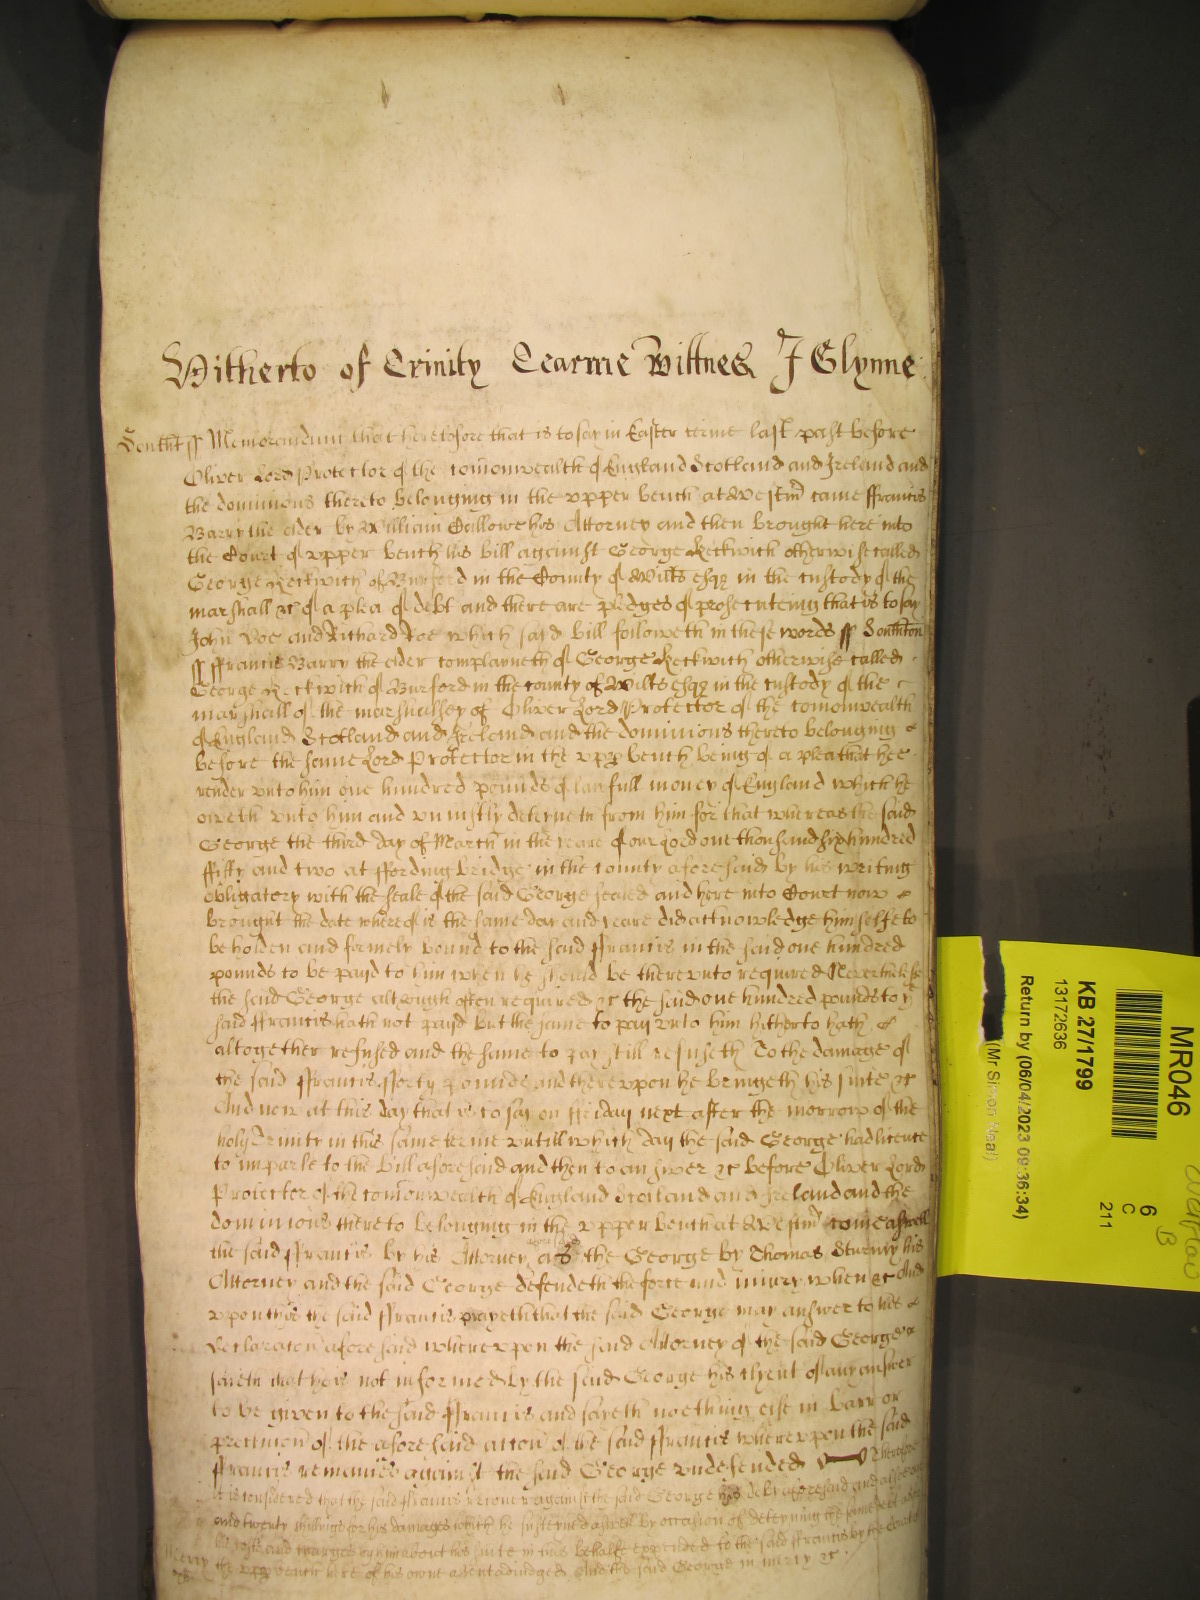 Hitherto of Trinity Tearme Wittnes J Glynne
Southt ss Memorandum that heretofore that is to say in Easter terme last past before
Oliver Lord Protector of the comonwealth of England Scotland and Ireland and
the dominions thereto belonging in the upper bench at Westmr came ffrancis
Barry the elder by William Gallowe his Attorney and then brought here into
the Court of upper bench his bill against George Keckwich otherwise called
George Keckwich of Burford in the County of Wilts esqr in the custody of the
marshall &c of a plea of debt and there are pledges of prosecuteing that is to say
John Doe and Richard Roe which said bill followeth in these words ss Southton
ss ffrancis Barry the elder complayneth of George Keckwich otherwise called
George Keckwich of Burford in the county of Wilts esqr in the custody of the
marshall of the marshallsey of Oliver Lord Protector of the comonwealth
of England Scotland and Ireland and the dominions thereto belonging
before the same Lord Protector in the upp bench being of a plea that hee
render unto him one hundred pounds of lawfull money of England which he
oweth unto him and uniustly deteyneth from him for that whereas the said
George the third day of March in the yeare of our Lord one thousand six hundred
ffifty and two at ffordingbridge in the county aforesaid by his writing
obligatory with the seale of the said George sealed and here into Court now
brought the date whereof is the same day and yeare did acknowledge himselfe to
be holden and firmely bound to the said ffrancis in the said one hundred
pounds to be payd to him when he should be thereunto required Neverthelesse
the said George although often required &c the said one hundred pounds to ye
said ffrancis hath not payd but the same to pay unto him hitherto hath
altogether refused and the same to pay still refuseth To the damage of
the said ffrancis fforty pounds and thereupon he bringeth his suite &c
And now at this day that is to say on ffriday next after the morrow of the
holy Trinity in this same terme untill which day the said George had licence
to imparle to the bill aforesaid and then to answer &c before Oliver Lord
Protector of the comonwealth of England Scotland and Ireland and the
dominions thereto belonging in the upper bench at Westmr come aswell
the said ffrancis by his Attorney aforesaid as the George by Thomas Sturmy his
Attorney and the said George defendeth the force and iniury when &c And
upon this the said ffrancis prayeth that the said George may answer to his
declaracon aforesaid whereupon the said Attorney of the said George
saieth that he is not informed by the said George his clyent of any answer
to be given to the said ffrancis and sayeth noething else in barr or
preclusion of the aforesaid accon of the said ffrancis whereupon the said
ffrancis remaines against the said George undefended Therefore
it is considered that the said ffrancis recover against the said George his debt aforesaid and alsoe
and twenty shillings for his damages which he susteyned aswell by occasion of deteyning the same debt as for
his costs and charges by him about his suite in this behalfe expended to the said ffrancis by the Court
Mercy the upp bench here of his owne assent adiudged And the said George in mercy &c
MR046
6
C
211
KB 27/1799
13172636
Return by (06/04/2023 09:36:34)
(Mr Simon Neal)
B